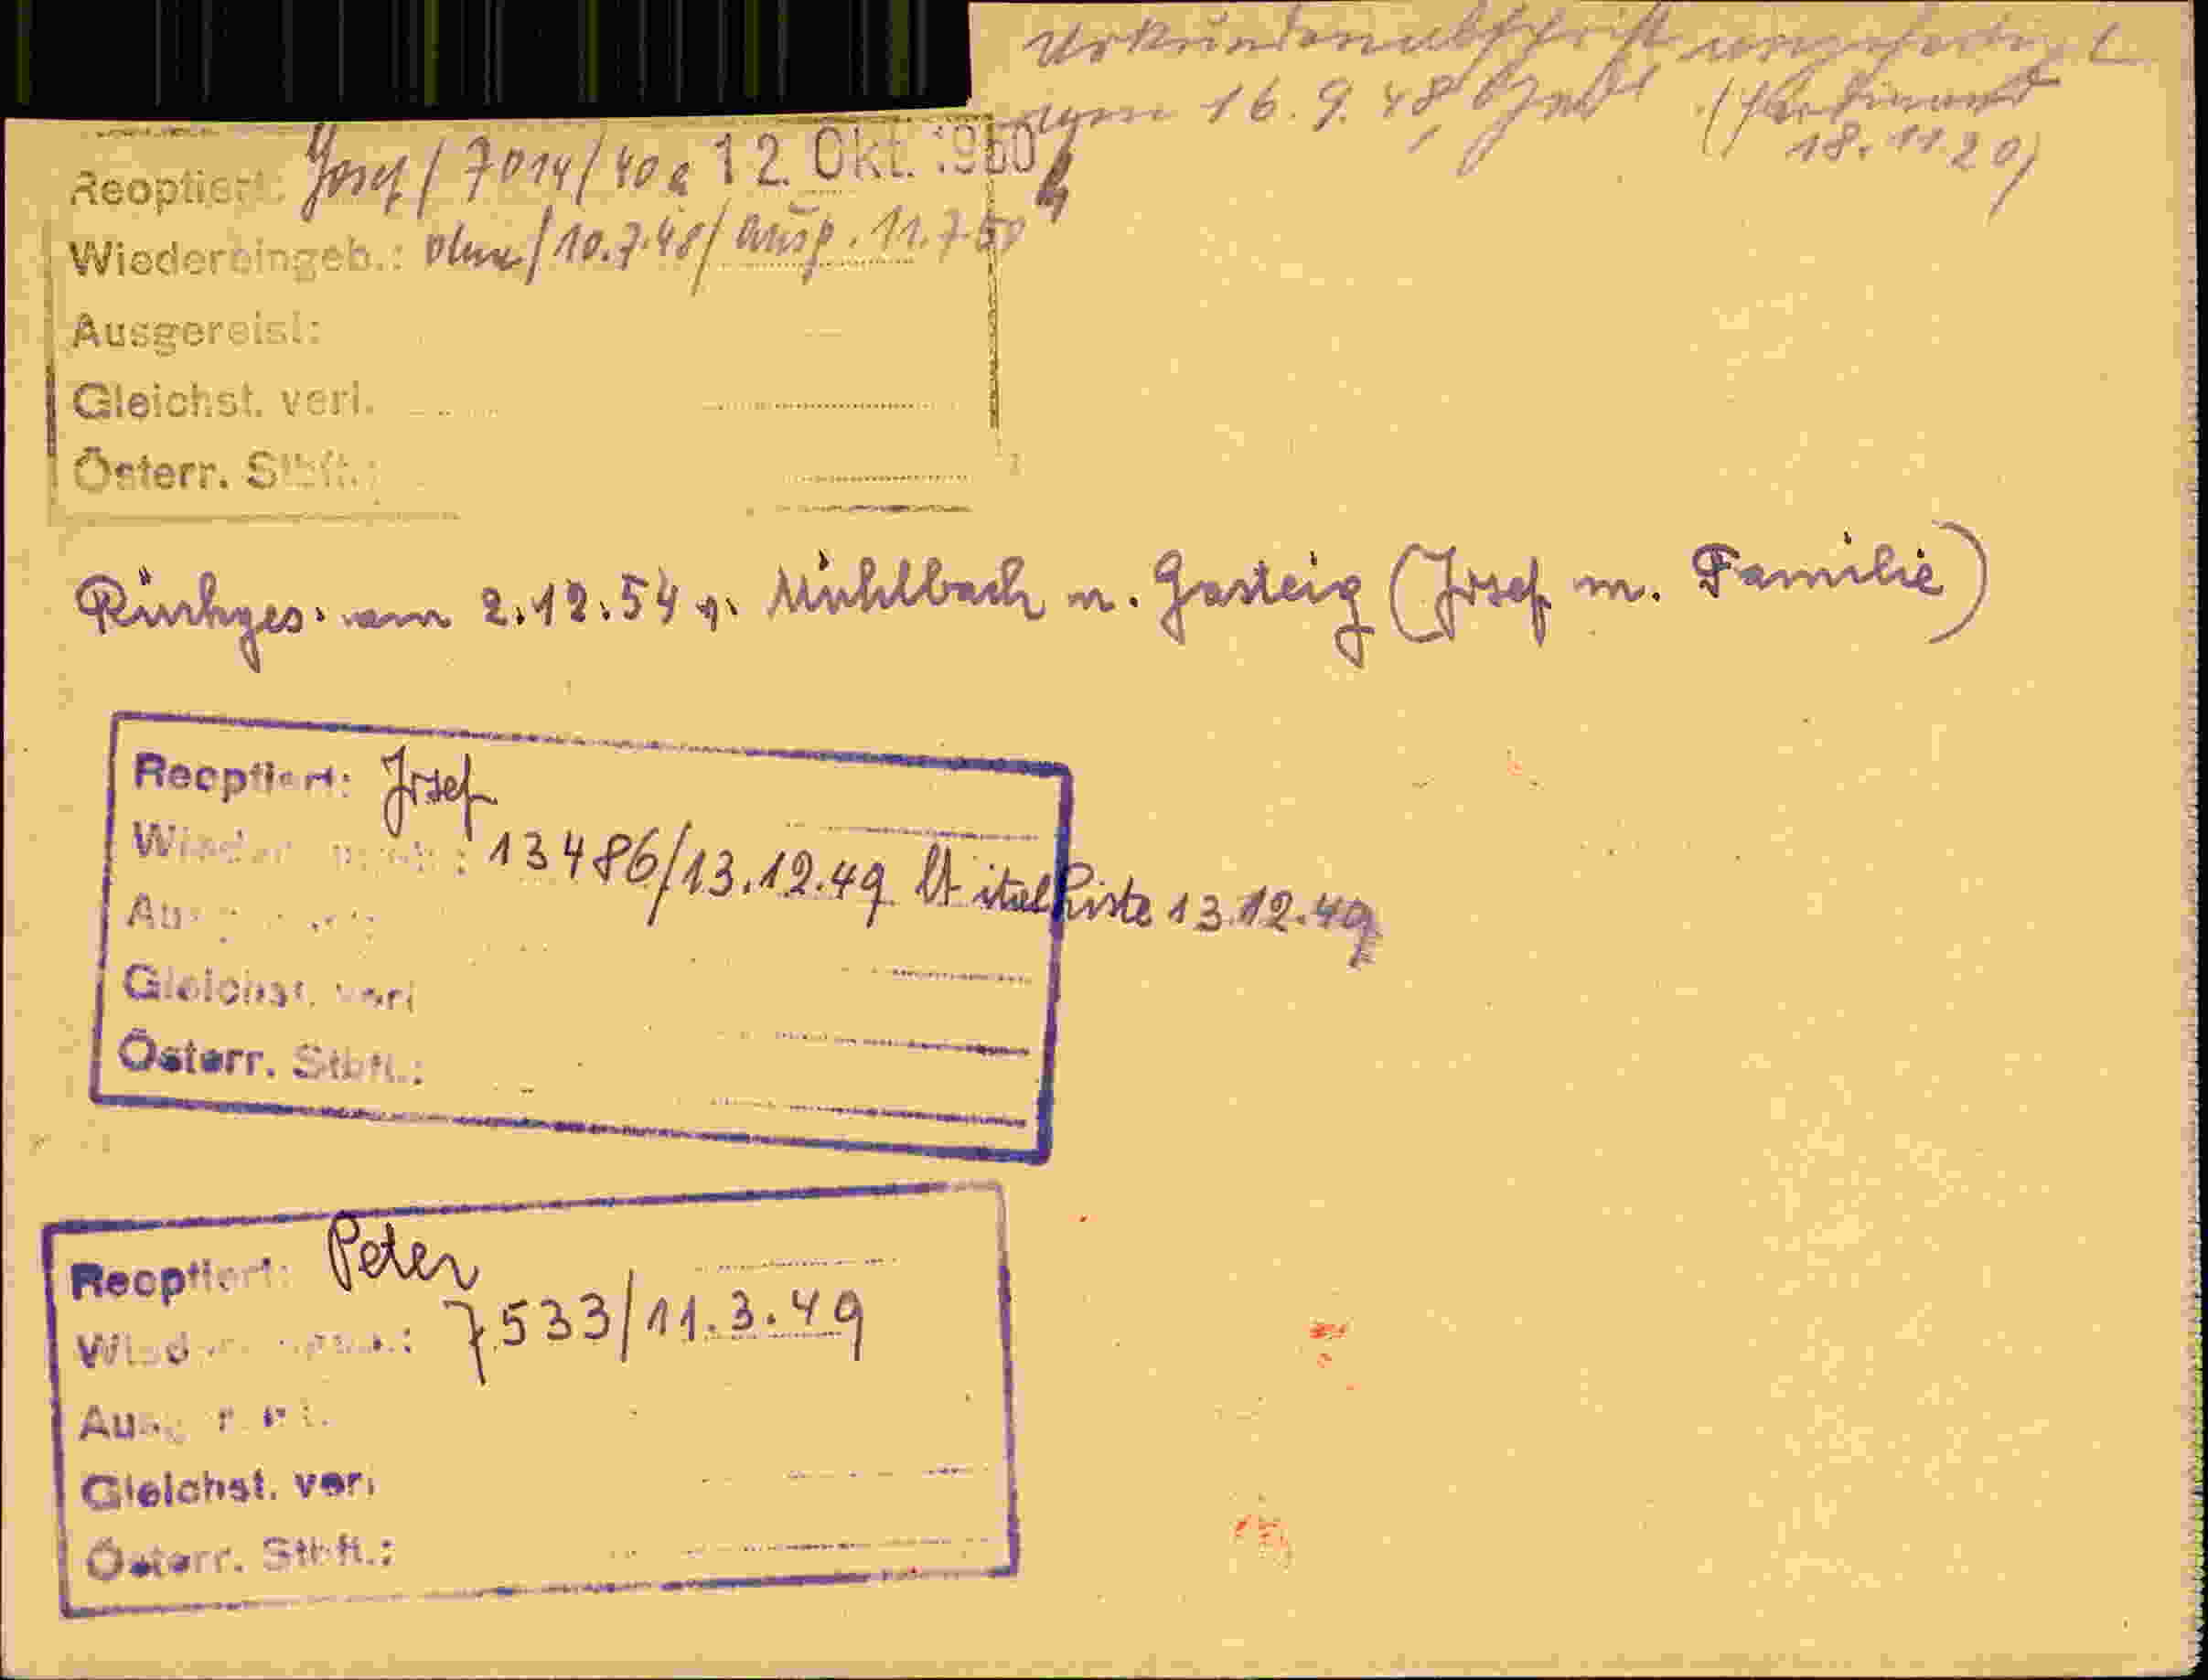 Urkundenabschrift
am 16.9.48 (Ferdinand
18.11.20)
Reoptiert: Josef / 7014/40a 12. Okt. 1950
Wiedereingeb.: ohne / 10.7.48 / 11.7.50
Ausgereist:
Gleichst. verl.
Österr. Stbft.:
Rückges. am 2.12.54 v. Mühlbach n. Gasteig (Josef m. Familie)
Reoptiert: Josef
13486/13.12.49 lt ital Liste 13.12.49
Gleichst. verl
Österr. Stbft.:
Reoptiert: Peter
7533/11.3.49
Gleichst. verl
Österr. Stbft.: